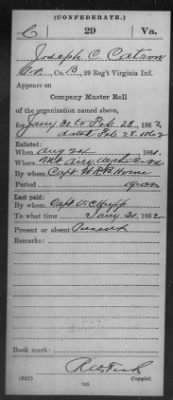 (CONFEDERATE.)
C 29 Va.
Joseph C. Catron
Co. B, 29 Reg't Virginia Inf.
Appears on
Company Muster Roll
of the organization named above,
for Jany 31 to Feb. 28, 1862
dated Feb 28. 1862
Enlisted:
When Aug 24 1861.
Where Mt Airy
By whom Capt. Horne
Period
Last paid:
By whom Capt.
To what time Jany 31, 1862
Present or absent Present
Remarks:
Book mark:
(642)
Copyist.